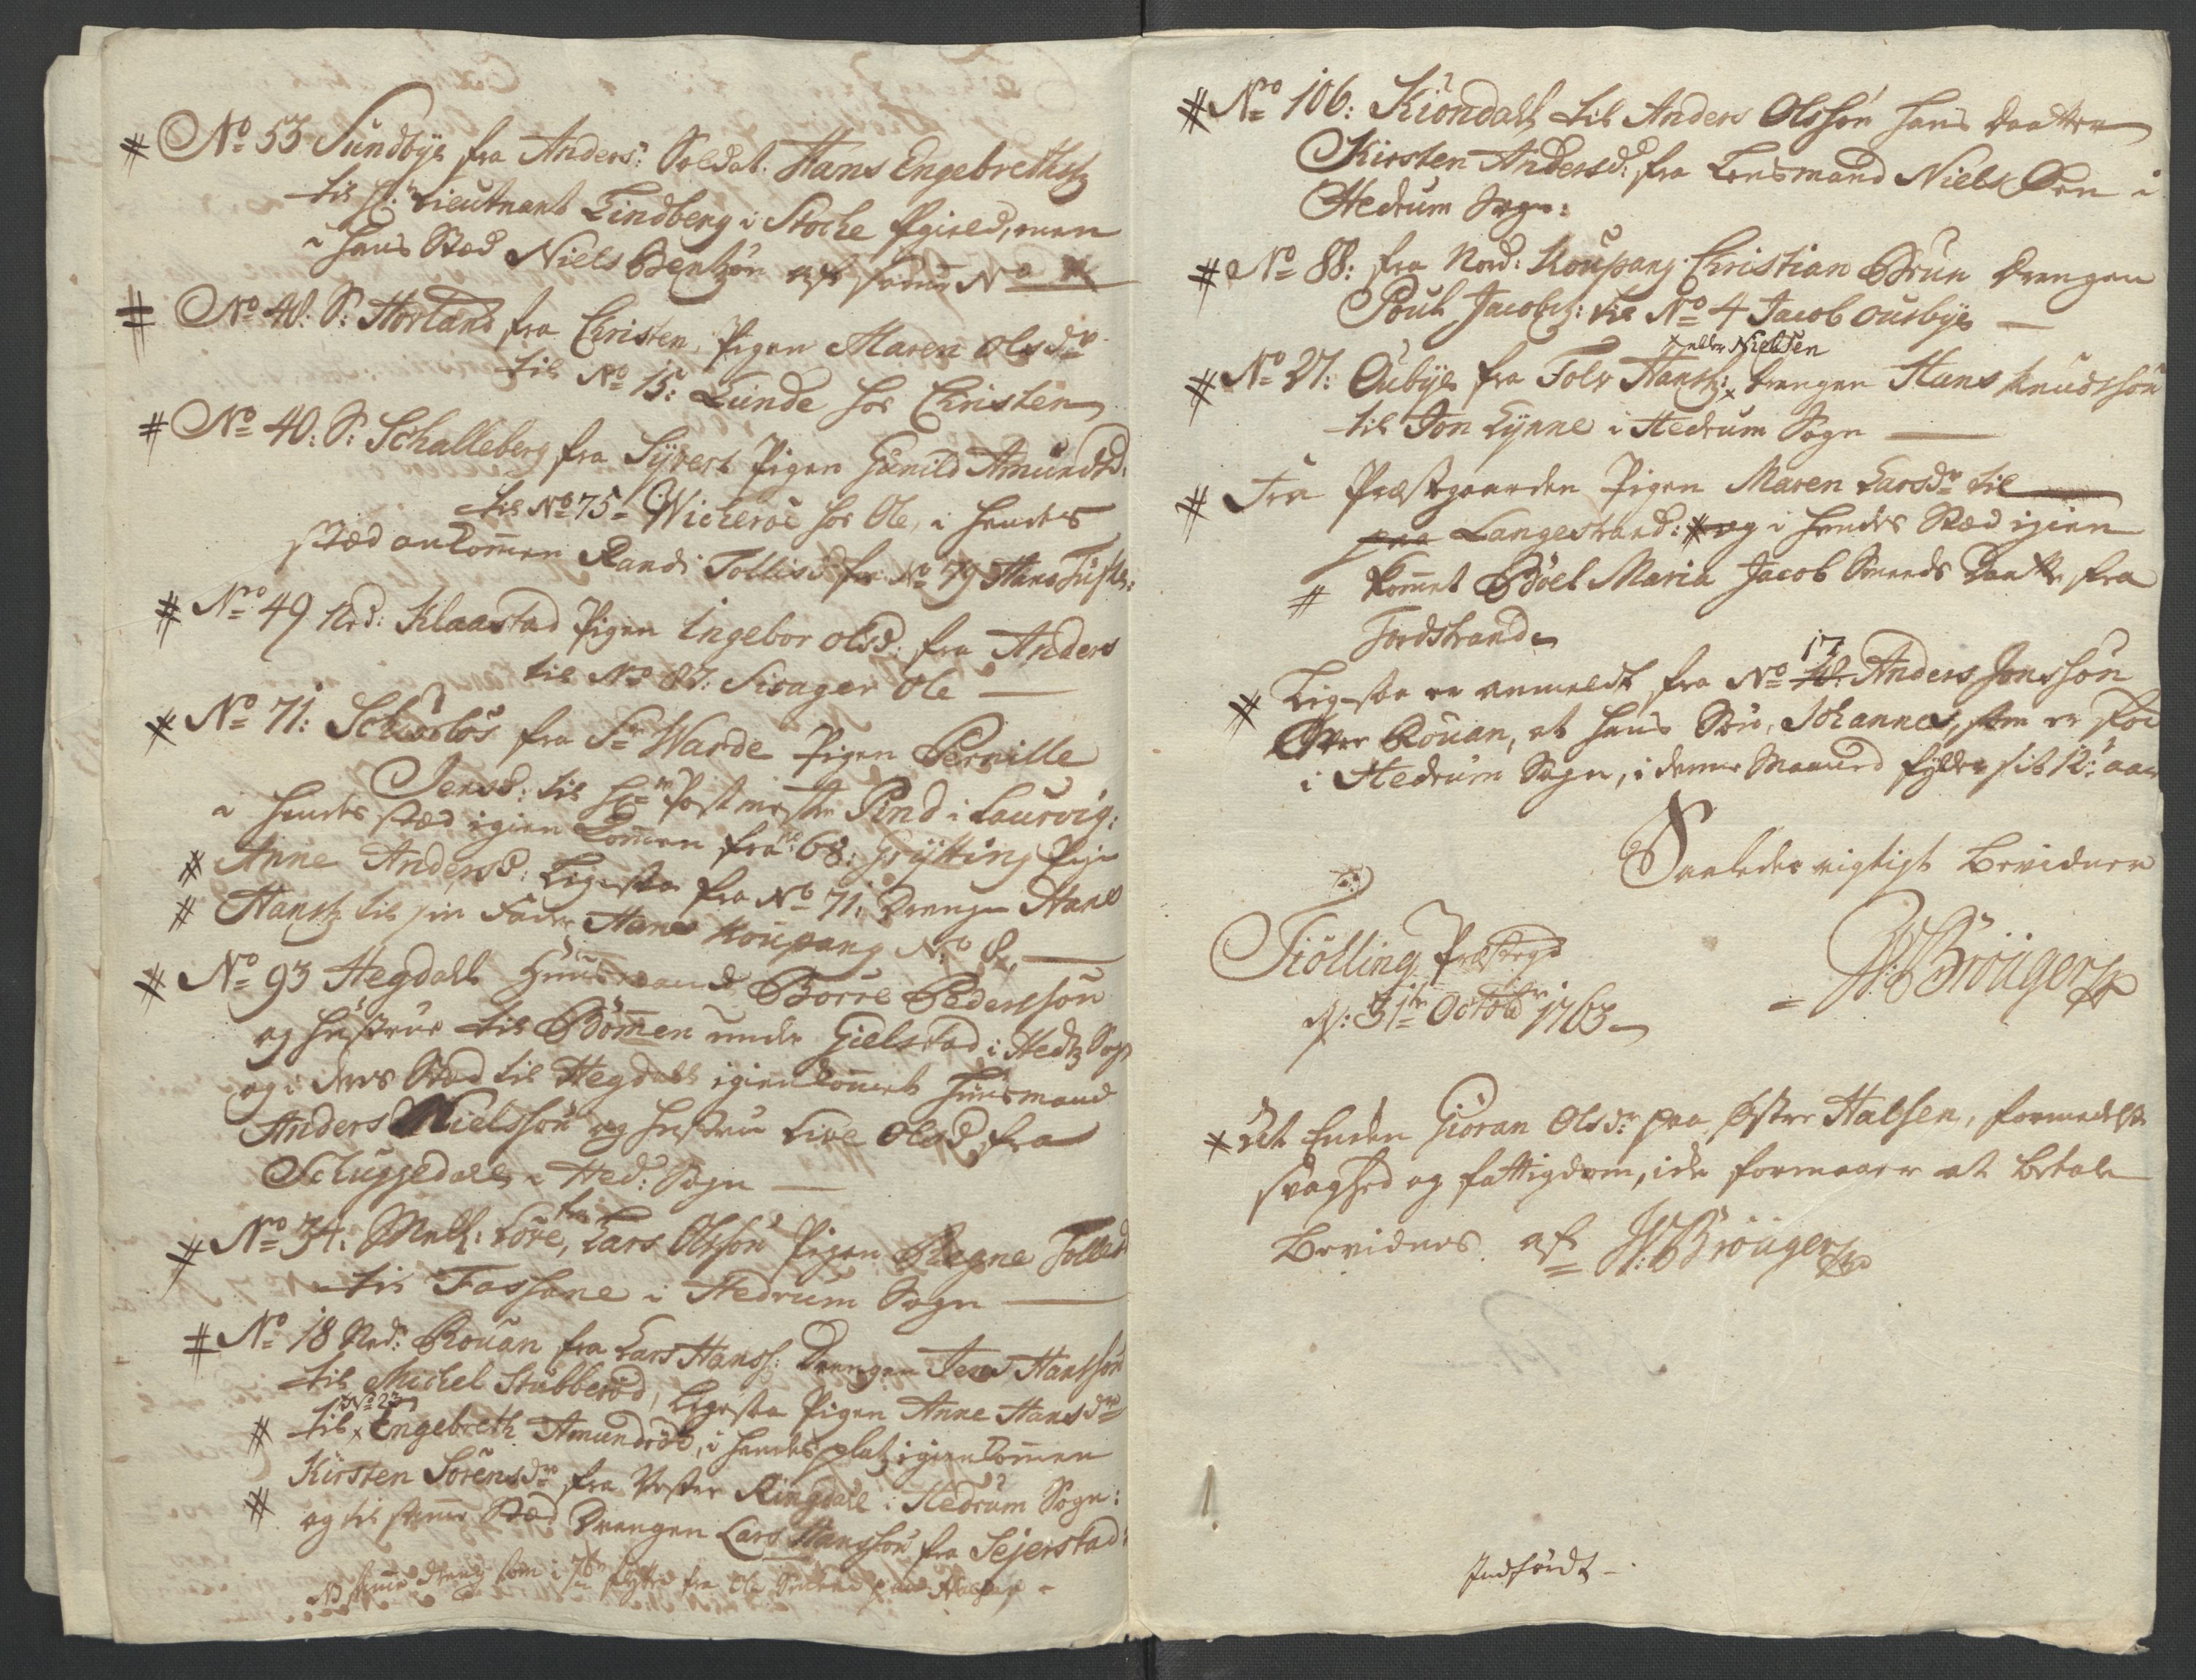 # No 53 Sundbye fra Anders: Soldat. Hans Engebrethss
til Hr: Lieutnant Lindberg i Stoche Pgield, men
i hans Stæd Niels Bentzøn af samme No
# No 48: S: Hovland fra Christen, Pigen Maren Olsdr
til No 15: Lunde hos Christen
# No 40: S: Schalleberg fra Syvert Pigen Gunild Amundsd:
til No 75 Wicheroe hos Ole, i hendes
stæd ankommen Randi Tollisd fra No 79 Hans
# No 49 Nrd: Klaastad Pigen Ingebor Olsd: fra Anders
til No 87: Sisager Ole
# No 71: Schisløs fra Sr Warde Pigen Pernille
Jensd: til Hr Postmester Pind i Laurvig:
i hendes stæd igien kommen fra No 68: Grytting Pige
# Anne Andersd: Ligesaa fra No 71: Drengen Hans
# Hanss til sin Fader Hans Koupang No 8,
# No 93 Hegdall Huusmand Borre Pederssøn
og hustrue til Bømen under Gielstad i Hedr Sogn
og i deres Stæd til Hegdall igienkommet huusmand
Anders Nielssøn og hustru Live Olsd fra
Schuggedall i Hed: Sogn
# No 34: Mell: Løve, fra Lars Olssøn Pigen Regne Tollesd
til Fossane i Hedrum Sogn
# No 18 Nrd: Rouan fra Lars Hanss: Drengen Jens Hanssøn
til Michel Stubberød, Ligesaa Pigen Anne Hansdr
# til x No 23 Engebreth Amundrød, i hendes plads igienkommen
Kirsten Sørensdr fra Vester Ringdall i Hedrum Sogn:
# og til samme Stæd Drengen Lars Hanssøn fra Sejerstad
NB samme dreng som i fra Ole
# No 106: Kiøndall til Anders Olssøn hans Daatter
Kirsten Andersd: fra Lensmand Niels Øen i
Hedrum Sogn:
# No 88: fra Nord: Koupang Christian Brun Drengen
Poul Jacobs: til No 4 Jacob Ousbye
# No 27: Oubye fra Tolv Hanss: x eller Nielsen Drengen Hans Knudssøn
til Jon Lynne i Hedrum Sogn
# Fra Præstgaarden Pigen Maren Larsdr til
paa Langestrand: # og i hendes Stæd igien
# kommet Bøel Maria Jacob Smeds Daatter fra
Fordstrand
# Ligesaa er anmeldt fra No 17 Anders Jonssøn
Øvre Rouan, at hans Søn, Johannes, som er fød
i Hedrum Sogn, i denne Maaned fylder sit 12: aar
Saaledes rigtigt bevidner
Tiølling Præstegd
d: 31te Octobr 1763
W: Brøuger
# At Enken Giøran Olsdr paa Øster Halsen, formedelst
svaghed og fattigdom, icke formaaer at betale
bevidnes af W: Brøuger
Indført